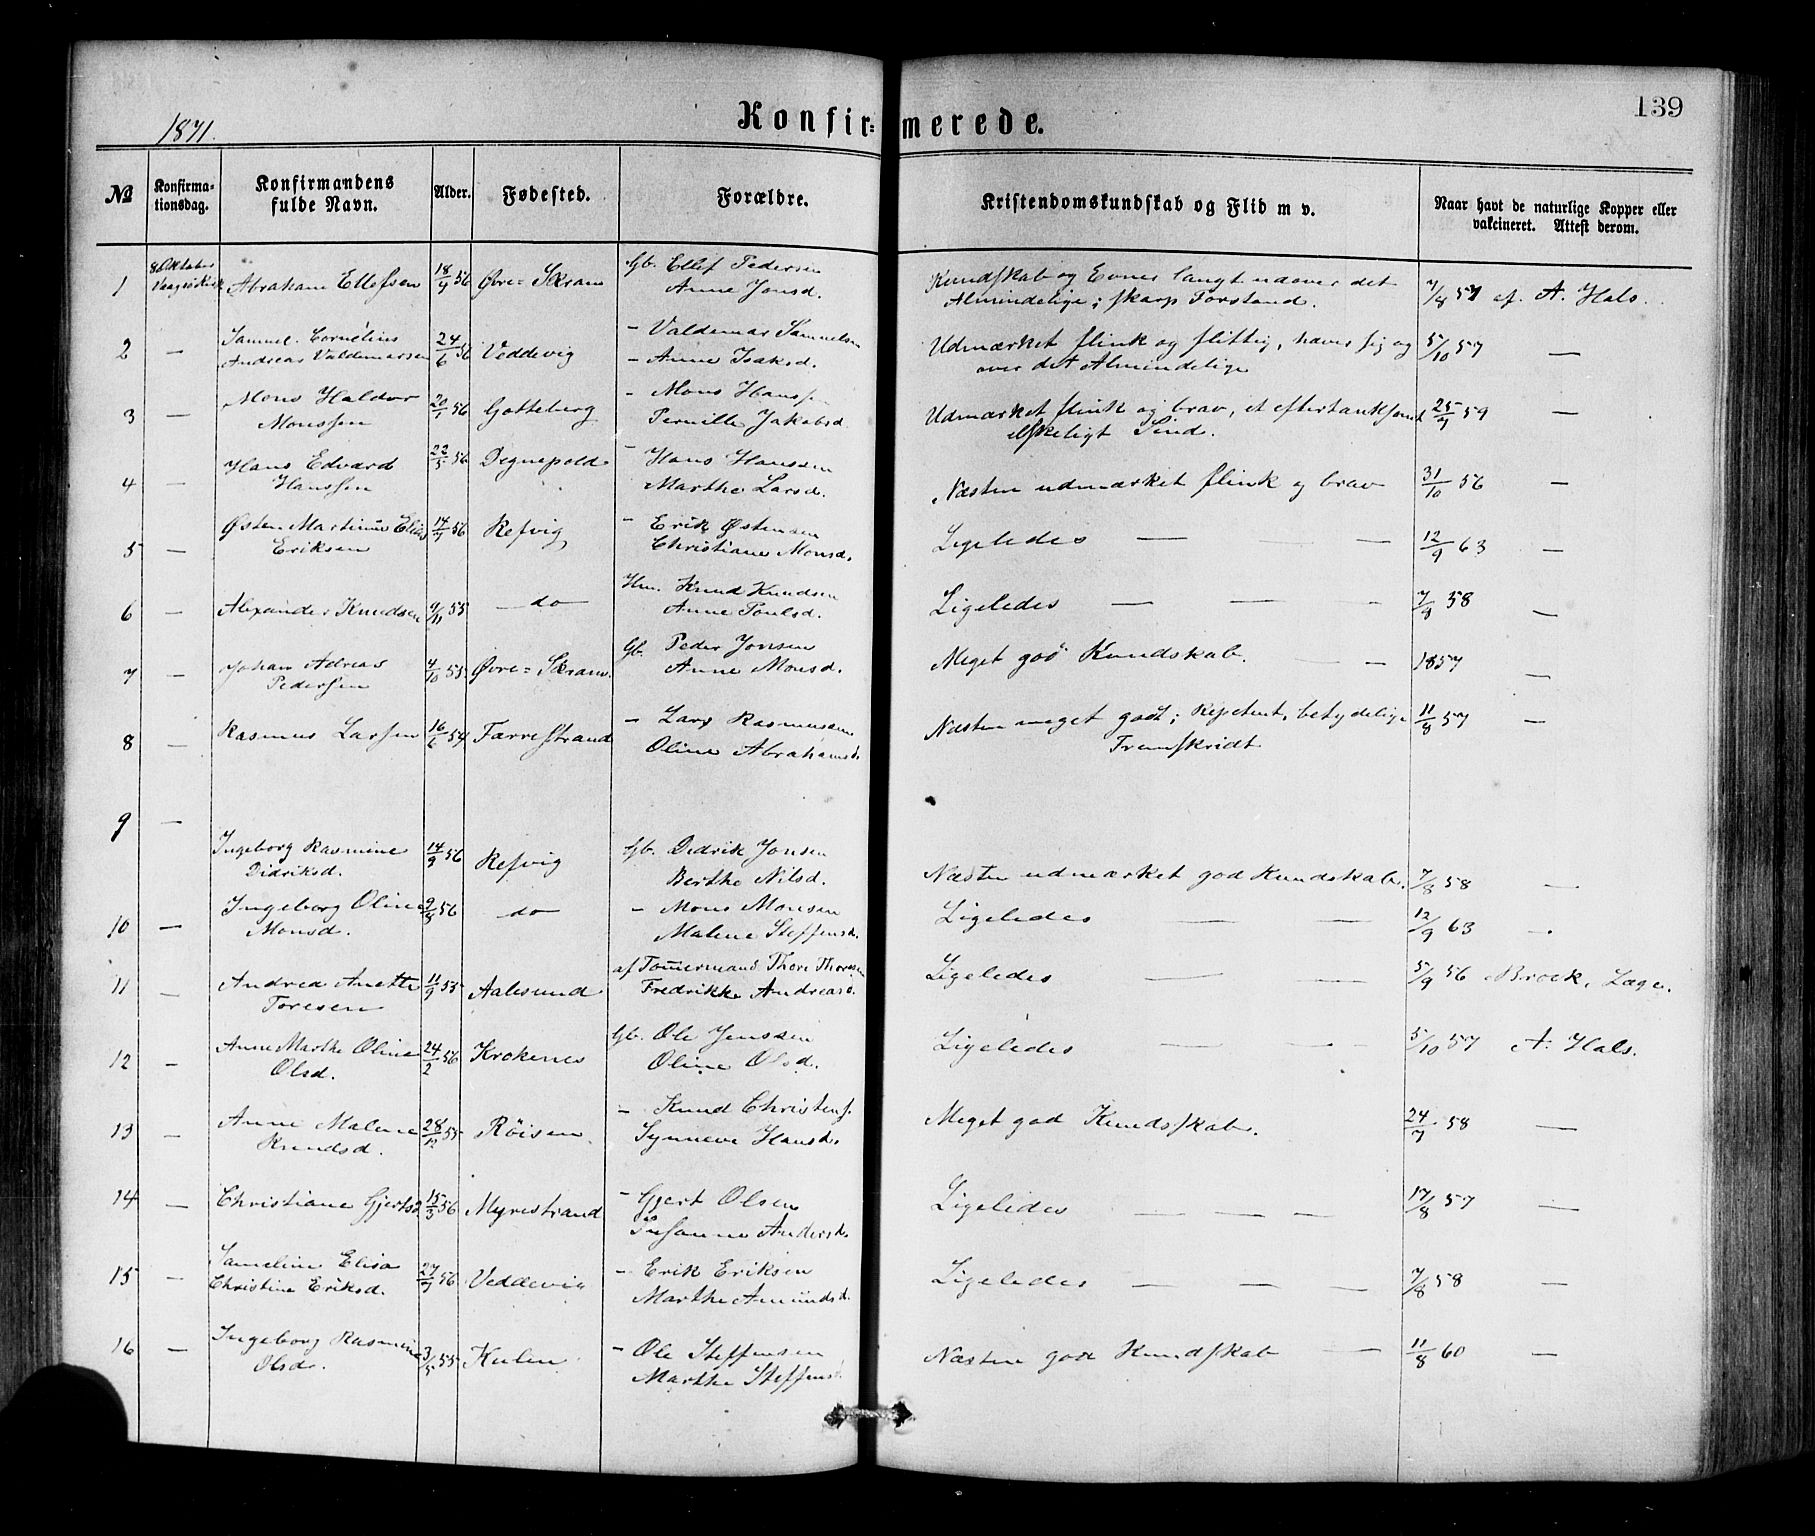 139
1871.
Konfir=merede.
No Konfirma-tionsdag. Konfirmandens fulde Navn. Alder. Fødested. Forældre. Kristendomskundskab og Flid m v. Naar havt de naturlige Kopper eller vakcineret. Attest derom.
8 Oktober Gb. Ellef Pedersen Kundskab og Evner langt udover det
1 Vaagsø Kirke Abraham Ellefsen 18/9 56 Øvre=Skram Anne Jonsd. Almindelige; skarp Forstand. 7/8 57 af A. Hals.
Samuel Cornelius – Valdemar Samuelsen Udmærket flink og flittig, hæver sig og
2 — Andreas Valdemarsen 24/6 56 Veddevig – Anne Isaksd. over det Almindelige 5/10 57 —
Mons Haldor – Mons Hanssen Udmærket flink og brav, et eftertanksomt
3 — Monssen 20/1 56 Gotteberg Pernille Jakobsd elskeligt Sind. 25/7 59 —
Hans Edvard 22/5 56 Degnepold – Hans Hanssen
4 — Hanssen Marthe Larsd. Næsten udmærket flink og brav 31/10 56 —
Østen Martinus Elias 14/7 56 Refvig – Erik Østensen Ligeledes — — —
5 — Eriksen Christiane Monsd. 12/9 63 —
Hm. Knud Knudsen
6 — Alexander Knudsen 9/11 55 — do — Anne Poulsd. Ligeledes — — — 7/9 58 —
Johan Adreas Gb. Peder Jonsen
7 — Pedersen 4/10 55 Øvre=Skram. Anne Monsd. Meget god Kundskab. — — 1857 —
– Lars Rasmussen Næsten meget godt; Repetent, betydelige
8 — Rasmus Larsen 16/6 54 Færrestrand Oline Abrahamsd. Fremskridt 11/8 57 —
9 —
Ingeborg Rasmine 14/9 56 Refvig Gb. Didrik Jonsen
Didriksd. Berthe Nilsd. Næsten udmærket god Kundskab. 7/8 58 —
Ingeborg Oline 56 — do – Mons Monsen Ligeledes — —
10 — Monsd. Malene Steffensd. 12/9 63 —
Andrea Anette af Tømmermand Thore Thoresen Ligeledes — —
11 — Toresen 11/9 55 Aalesund Fredrikke Andreasd. 5/9 56 Brock, Læge.
Anne Marthe Oline Gb. Ole Jenssen
12 — Olsd. 24/2 56 Krokenes Oline Olsd. Ligeledes — — — 5/10 57 A. Hals.
Anne Malene – Knud Christens. Meget god Kundskab.
13 — Knudsd. 28/12 55 Røisen. Synneve Hansd. 24/7 58 —
14 — Christiane Gjertsd 15/3 56 Myrestrand – Gjert Olsen Ligeledes — — — 17/8 57 —
Susanne Andersd.
Sameline Elisa – Erik Eriksen
15 — Christine Eriksd. 27/7 56 Veddevig Marthe Amundsd. Ligeledes — — — 7/8 58 —
Ingeborg Rasmine – Ole Steffensen
16 — Olsd. 3/5 55 Kulen Marthe Steffensd. Næsten god Kundskab — — 11/8 60 —